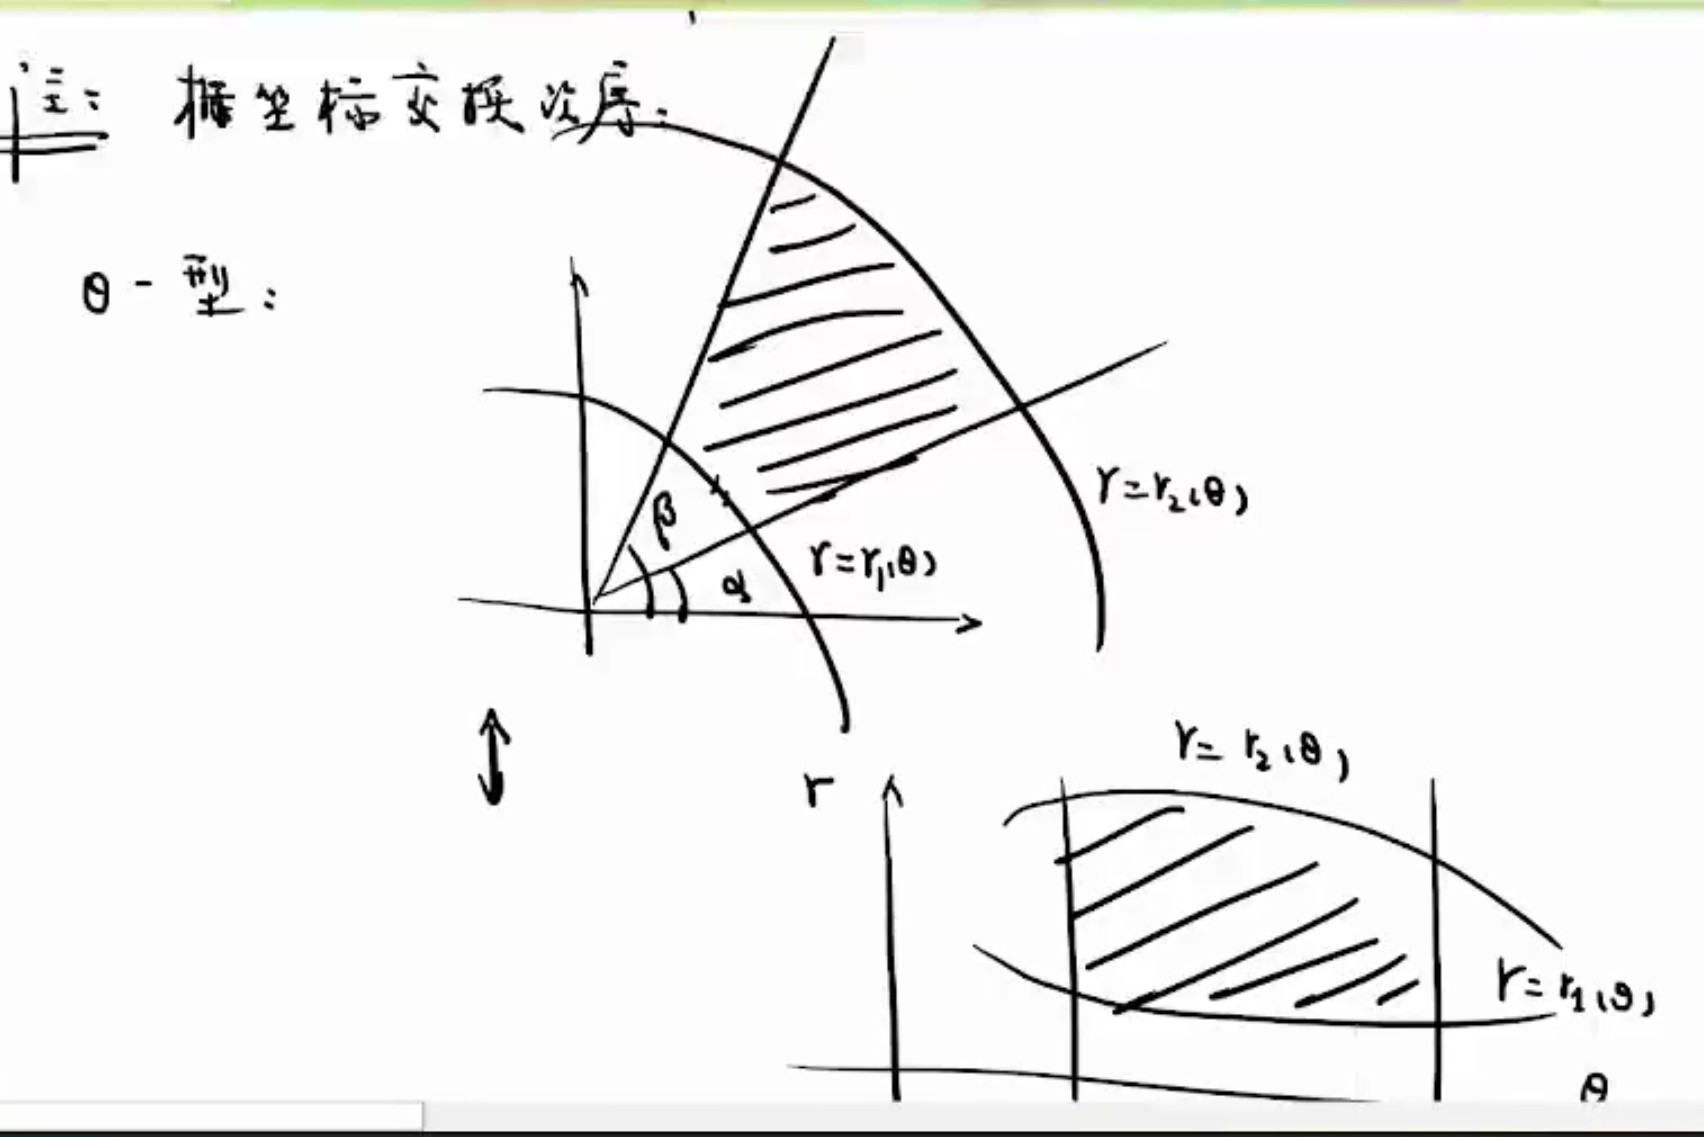 注: 极坐标交换次序:
θ-型:
β
α
r=r₂(θ)
r=r₁(θ)
r=r₂(θ)
r
r=r₁(θ)
θ